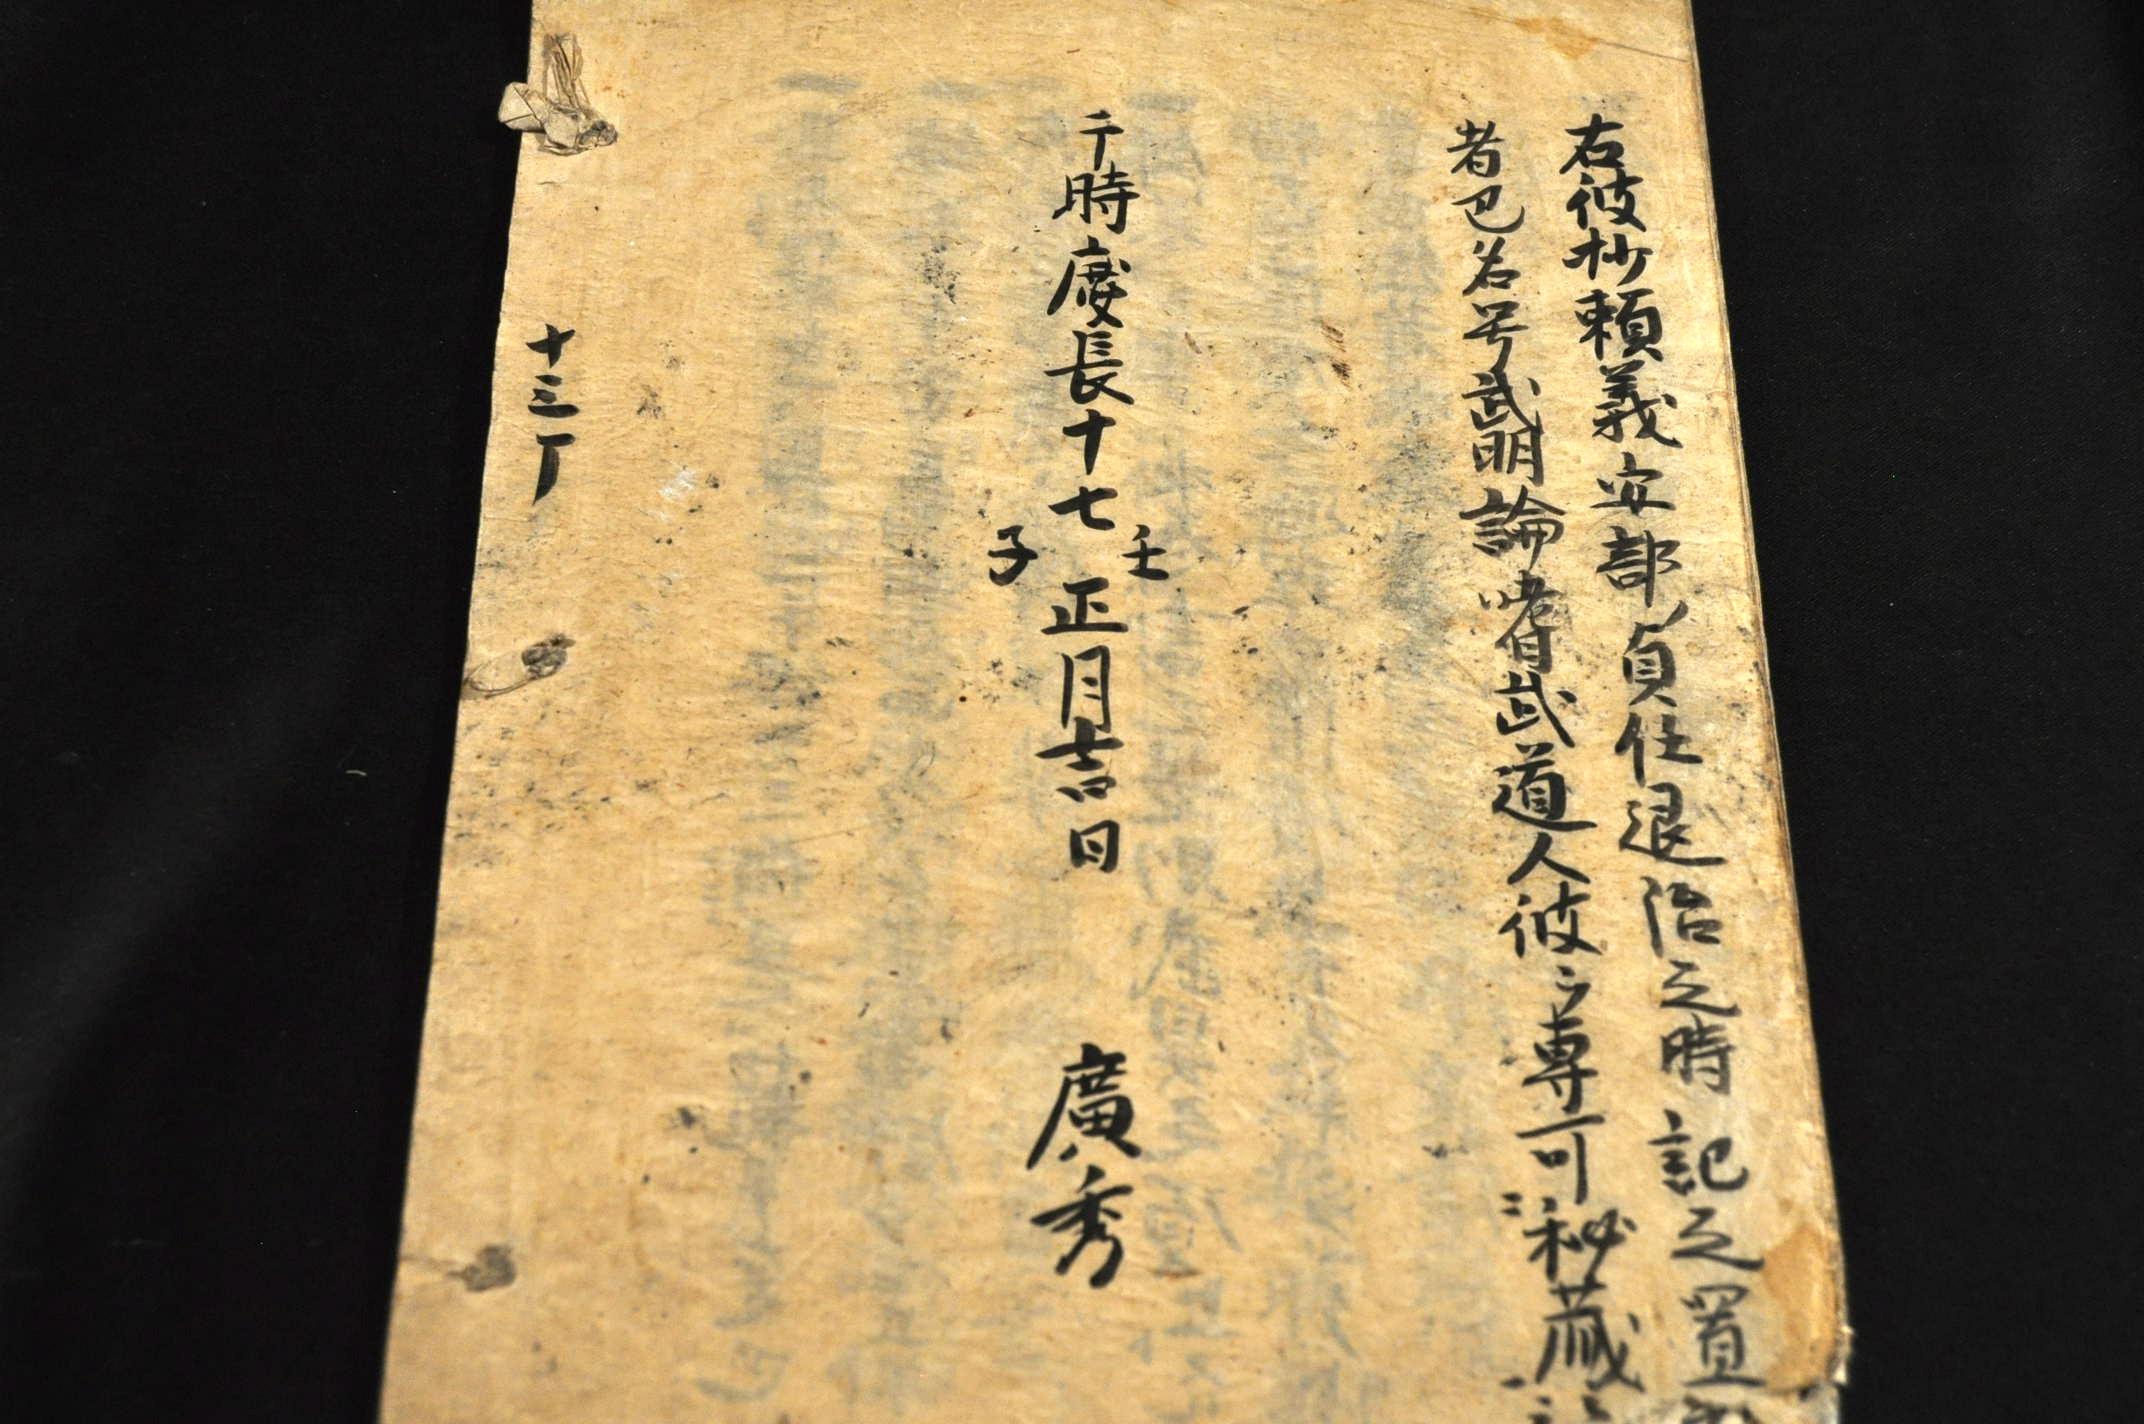 右彼抄頼義安部貞任退治之時記之置
者也名号武明論嗜武道人彼之専可秘蔵
于時慶長十七壬子正月吉日 廣秀
十三丁